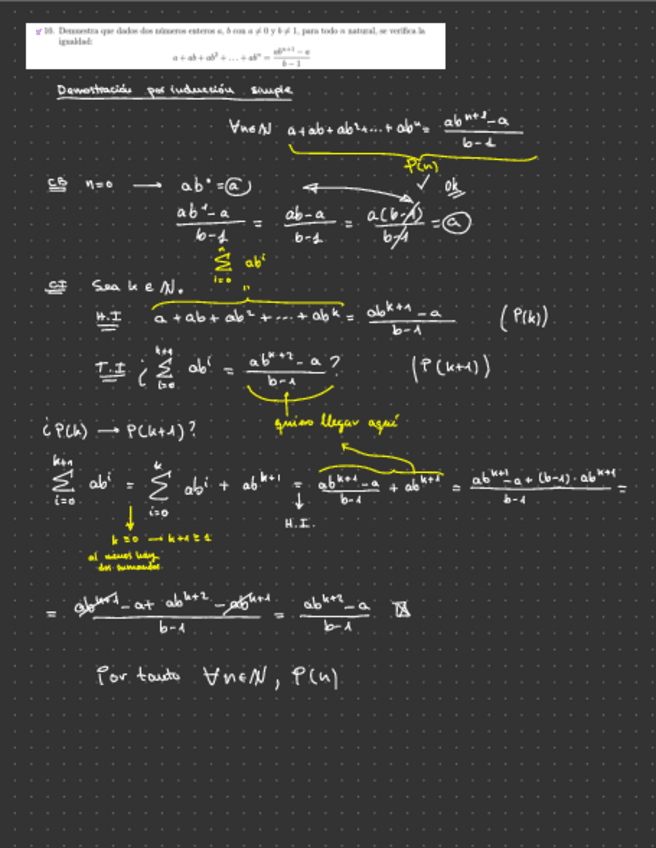 10. Demuestra que dados dos números enteros a, b con a ≠ 0 y b ≠ 1, para todo n natural, se verifica la
igualdad:
a + ab + ab² + … + abⁿ = (abⁿ⁺¹ − a)/(b − 1)
Demostración por inducción simple
∀n∈ℕ a+ab+ab²+...+abⁿ = (abⁿ⁺¹ − a)/(b−1)
P(n)
CB n=0 → ab⁰ = a ✓ Ok
(ab¹ − a)/(b−1) = (ab−a)/(b−1) = a(b−1)/(b−1) = a
Σ_{i=0}^{n} abⁱ
"
CI Sea k ∈ ℕ.
H.I a + ab + ab² + ... + abᵏ = (abᵏ⁺¹ − a)/(b−1) (P(k))
T.I ¿ Σ_{i=0}^{k+1} abⁱ = (abᵏ⁺² − a)/(b−1) ? (P(k+1))
quiero llegar aquí
¿P(k) → P(k+1)?
Σ_{i=0}^{k+1} abⁱ = Σ_{i=0}^{k} abⁱ + abᵏ⁺¹ = (abᵏ⁺¹ − a)/(b−1) + abᵏ⁺¹ = (abᵏ⁺¹ − a + (b−1)·abᵏ⁺¹)/(b−1) =
H.I.
k ≥ 0 → k+1 ≥ 1
al menos hay
dos sumandos
= (abᵏ⁺¹ − a + abᵏ⁺² − abᵏ⁺¹)/(b−1) = (abᵏ⁺² − a)/(b−1)
Por tanto ∀n∈ℕ, P(n)